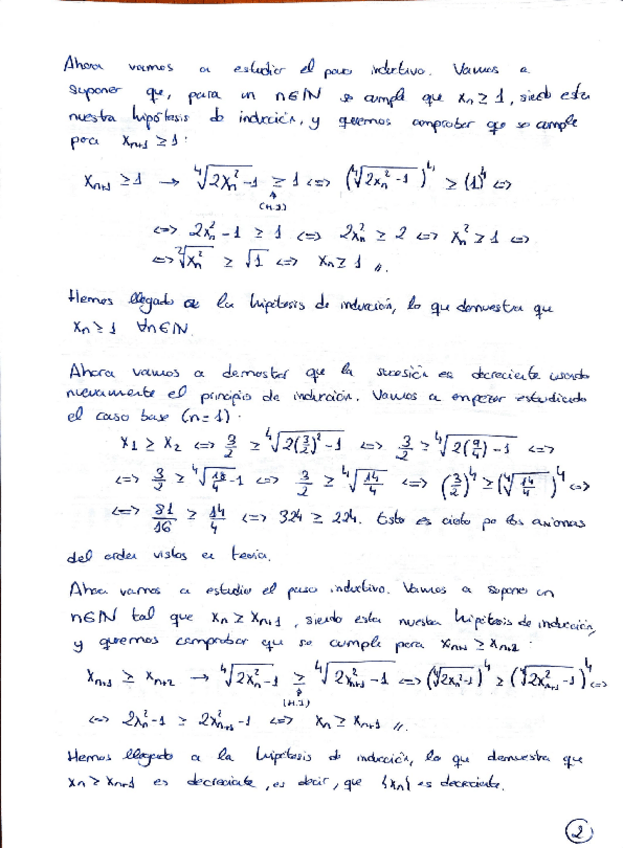 Ahora vamos a estudiar el paso inductivo. Vamos a
suponer que, para un n∈ℕ se cumple que xₙ ≥ 1, siendo esta
nuestra hipótesis de inducción, y queremos comprobar que se cumple
para xₙ₊₁ ≥ 1:
xₙ₊₁ ≥ 1 → ⁴√(2xₙ²-1) ≥ 1 <=> (⁴√(2xₙ²-1))⁴ ≥ (1)⁴ <=>
(H.I)
<=> 2xₙ²-1 ≥ 1 <=> 2xₙ² ≥ 2 <=> xₙ² ≥ 1 <=>
<=> ²√xₙ² ≥ √1 <=> xₙ ≥ 1 //.
Hemos llegado a la hipótesis de inducción, lo que demuestra que
xₙ ≥ 1 ∀n∈ℕ.
Ahora vamos a demostrar que la sucesión es decreciente usando
nuevamente el principio de inducción. Vamos a empezar estudiando
el caso base (n=1):
x₁ ≥ x₂ <=> 3/2 ≥ ⁴√(2(3/2)²-1) <=> 3/2 ≥ ⁴√(2(9/4)-1) <=>
<=> 3/2 ≥ ⁴√(18/4-1) <=> 3/2 ≥ ⁴√(14/4) <=> (3/2)⁴ ≥ (⁴√(14/4))⁴ <=>
<=> 81/16 ≥ 14/4 <=> 324 ≥ 224. Esto es cierto por los axiomas
del orden vistos en teoría.
Ahora vamos a estudiar el paso inductivo. Vamos a suponer un
n∈ℕ tal que xₙ ≥ xₙ₊₁, siendo esta nuestra hipótesis de inducción,
y queremos comprobar que se cumple para xₙ₊₁ ≥ xₙ₊₂:
xₙ₊₁ ≥ xₙ₊₂ → ⁴√(2xₙ²-1) ≥ ⁴√(2xₙ₊₁²-1) <=> (⁴√(2xₙ²-1))⁴ ≥ (⁴√(2xₙ₊₁²-1))⁴ <=>
(H.I)
<=> 2xₙ²-1 ≥ 2xₙ₊₁²-1 <=> xₙ ≥ xₙ₊₁ //.
Hemos llegado a la hipótesis de inducción, lo que demuestra que
xₙ ≥ xₙ₊₁ es decreciente, es decir, que {xₙ} es decreciente.
2